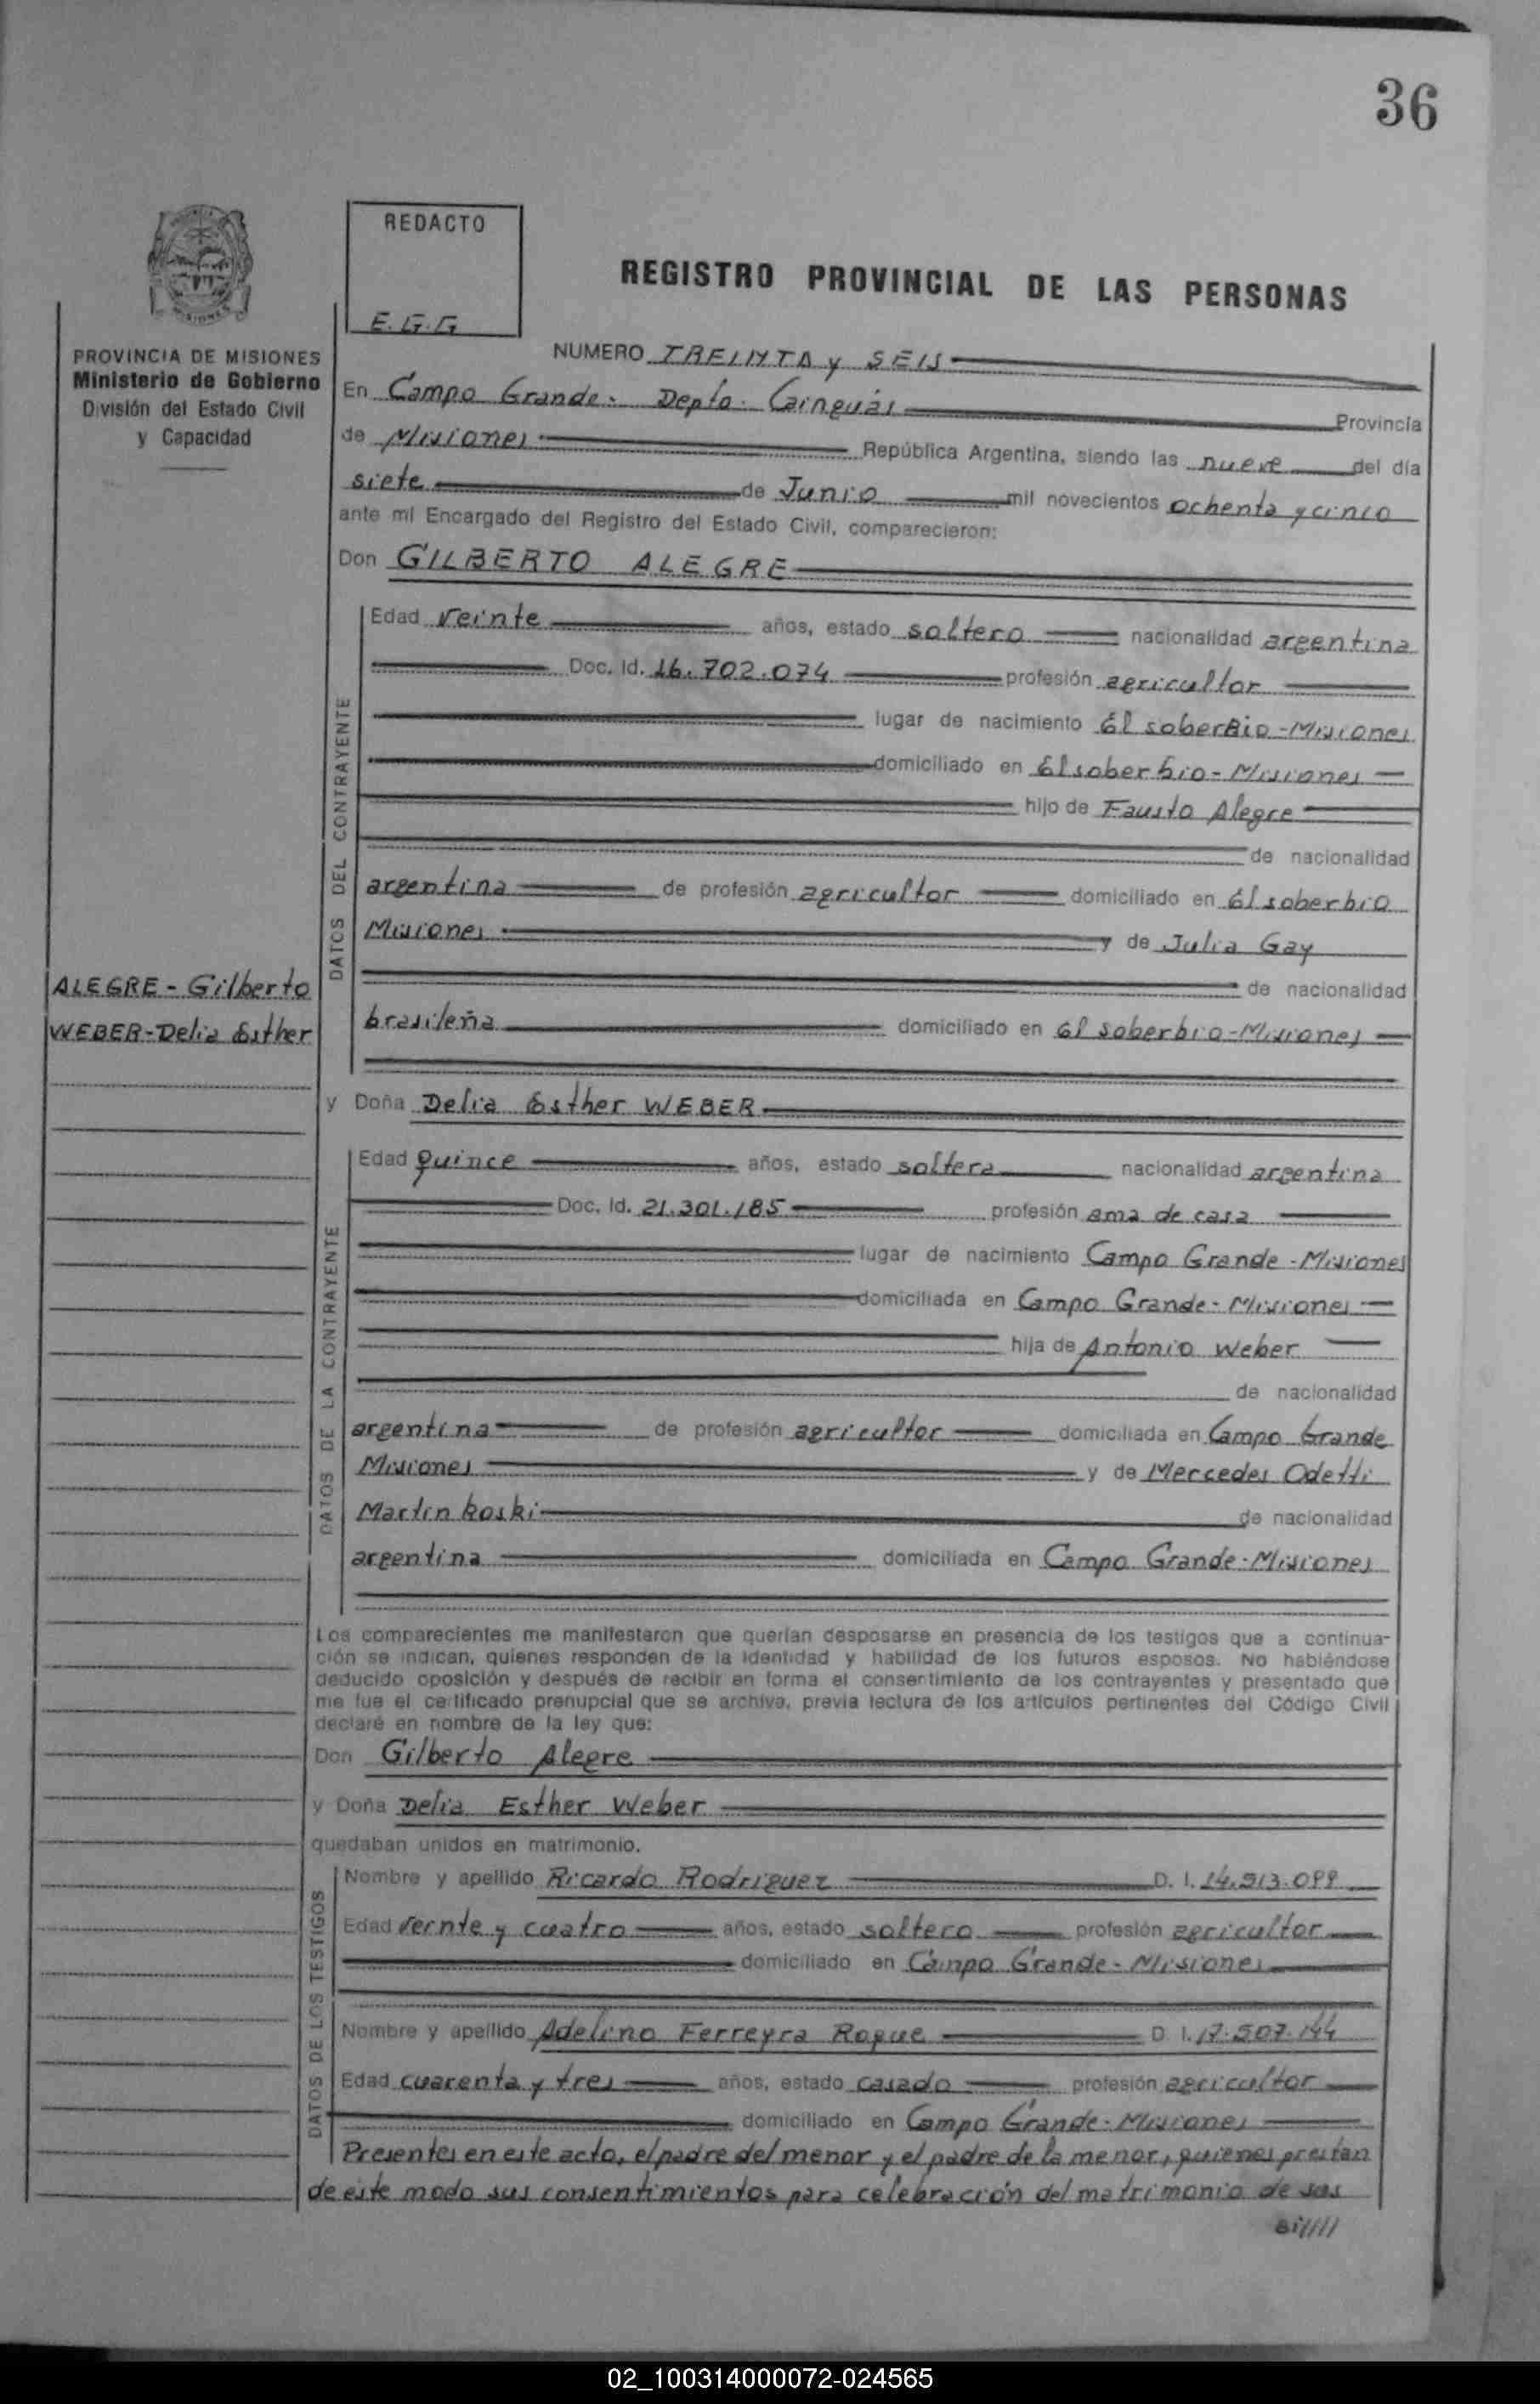 36
REDACTO
E.G.G
REGISTRO PROVINCIAL DE LAS PERSONAS
PROVINCIA DE MISIONES
Ministerio de Gobierno
División del Estado Civil
y Capacidad
NUMERO TREINTA y SEIS
En Campo Grande. Depto. Cainguás Provincia
de Misiones República Argentina, siendo las nueve del día
siete de Junio mil novecientos ochenta y cinco
ante mí Encargado del Registro del Estado Civil, comparecieron:
Don GILBERTO ALEGRE
DATOS DEL CONTRAYENTE
Edad veinte años, estado soltero nacionalidad argentina
Doc. Id. 16.702.074 profesión agricultor
lugar de nacimiento El soberbio - Misiones
domiciliado en El soberbio - Misiones
hijo de Fausto Alegre
de nacionalidad
argentina de profesión agricultor domiciliado en El soberbio
Misiones y de Julia Gay
de nacionalidad
brasileña domiciliado en El soberbio - Misiones
ALEGRE - Gilberto
WEBER - Delia Esther
y Doña Delia Esther WEBER
DATOS DE LA CONTRAYENTE
Edad quince años, estado soltera nacionalidad argentina
Doc. Id. 21.301.185 profesión ama de casa
lugar de nacimiento Campo Grande - Misiones
domiciliada en Campo Grande - Misiones
hija de Antonio Weber
de nacionalidad
argentina de profesión agricultor domiciliada en Campo Grande
Misiones y de Mercedes Odetti
Martinkoski de nacionalidad
argentina domiciliada en Campo Grande - Misiones
Los comparecientes me manifestaron que querían desposarse en presencia de los testigos que a continua-
ción se indican, quienes responden de la identidad y habilidad de los futuros esposos. No habiéndose
deducido oposición y después de recibir en forma el consentimiento de los contrayentes y presentado que
me fue el certificado prenupcial que se archiva, previa lectura de los artículos pertinentes del Código Civil
declaré en nombre de la ley que:
Don Gilberto Alegre
y Doña Delia Esther Weber
quedaban unidos en matrimonio.
DATOS DE LOS TESTIGOS
Nombre y apellido Ricardo Rodriguez D. I. 14.513.099
Edad veinte y cuatro años, estado soltero profesión agricultor
domiciliado en Campo Grande - Misiones
Nombre y apellido Adelino Ferreyra Roque D. I. 17.507.144
Edad cuarenta y tres años, estado casado profesión agricultor
domiciliado en Campo Grande - Misiones
Presentes en este acto, el padre del menor y el padre de la menor, quienes prestan
de este modo sus consentimientos para celebración del matrimonio de sus
02_100314000072-024565